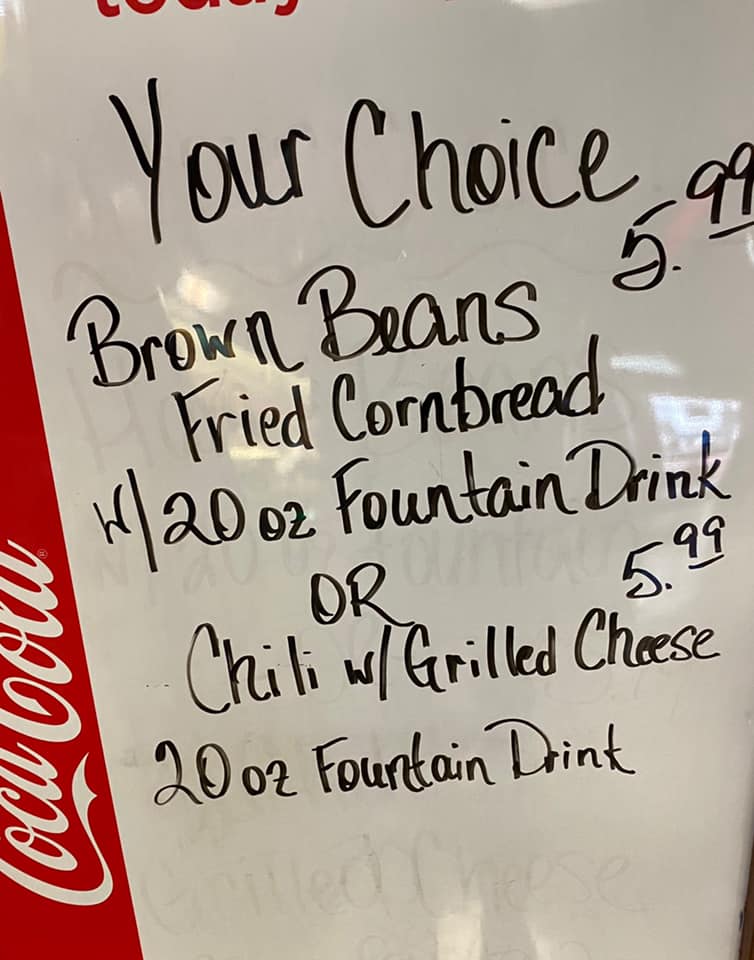 today
Your Choice
5.99
Brown Beans
Fried Cornbread
w/20 oz Fountain Drink
OR
5.99
Chili w/Grilled Cheese
20 oz Fountain Drink
Grilled Cheese
Coca-Cola®